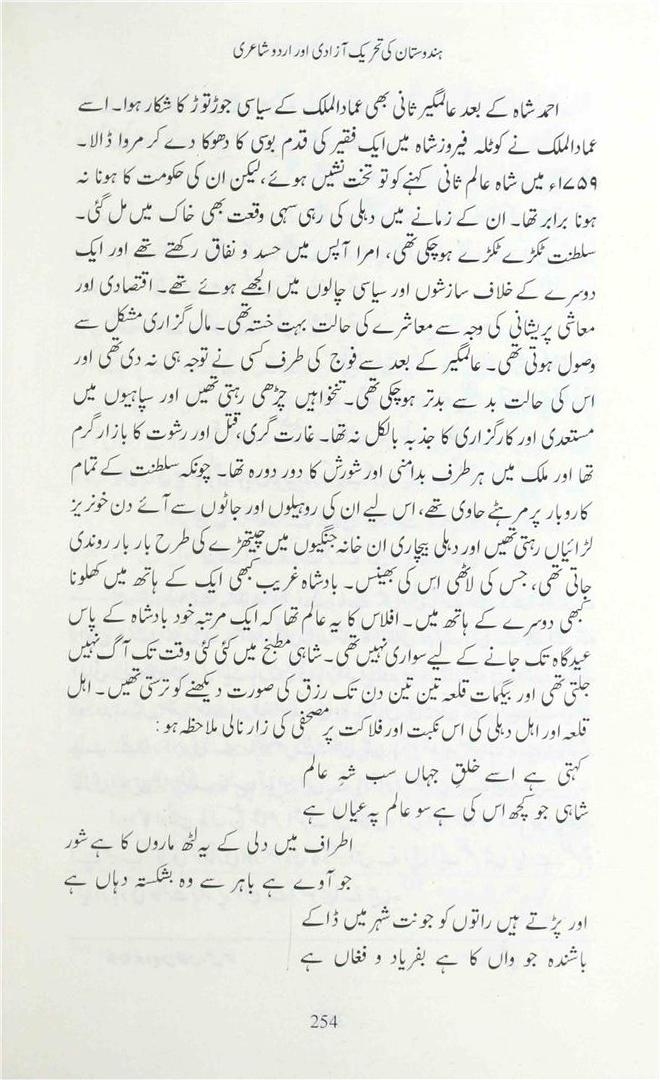 ہندوستان کی تحریک آزادی اور اردو شاعری
احمد شاہ کے بعد عالمگیر ثانی بھی عماد الملک کے سیاسی جوڑ توڑ کا شکار ہوا۔ اسے
عماد الملک نے کوٹلہ فیروز شاہ میں ایک فقیر کی قدم بوسی کا دھوکا دے کر مروا ڈالا۔
۱۷۵۹ء میں شاہ عالم ثانی کہنے کو تو تخت نشیں ہوئے، لیکن ان کی حکومت کا ہونا نہ
ہونا برابر تھا۔ ان کے زمانے میں دہلی کی رہی سہی وقعت بھی خاک میں مل گئی۔
سلطنت ٹکڑے ٹکڑے ہوچکی تھی، امرا آپس میں حسد و نفاق رکھتے تھے اور ایک
دوسرے کے خلاف سازشوں اور سیاسی چالوں میں الجھے ہوئے تھے۔ اقتصادی اور
معاشی پریشانی کی وجہ سے معاشرے کی حالت بہت خستہ تھی۔ مال گزاری مشکل سے
وصول ہوتی تھی۔ عالمگیر کے بعد سے فوج کی طرف کسی نے توجہ ہی نہ دی تھی اور
اس کی حالت بد سے بدتر ہوچکی تھی۔ تنخواہیں چڑھی رہتی تھیں اور سپاہیوں میں
مستعدی اور کارگزاری کا جذبہ بالکل نہ تھا۔ غارت گری، قتل اور رشوت کا بازار گرم
تھا اور ملک میں ہر طرف بدامنی اور شورش کا دور دورہ تھا۔ چونکہ سلطنت کے تمام
کاروبار پر مرہٹے حاوی تھے، اس لیے ان کی روہیلوں اور جاٹوں سے آئے دن خونریز
لڑائیاں رہتی تھیں اور دہلی بیچاری ان خانہ جنگیوں میں چیتھڑے کی طرح بار بار روندی
جاتی تھی، جس کی لاٹھی اس کی بھینس۔ بادشاہ غریب کبھی ایک کے ہاتھ میں کھلونا
کبھی دوسرے کے ہاتھ میں۔ افلاس کا یہ عالم تھا کہ ایک مرتبہ خود بادشاہ کے پاس
عیدگاہ تک جانے کے لیے سواری نہیں تھی۔ شاہی مطبخ میں کئی کئی وقت تک آگ نہیں
جلتی تھی اور بیگمات قلعہ تین تین دن تک رزق کی صورت دیکھنے کو ترستی تھیں۔ اہل
قلعہ اور اہل دہلی کی اس نکبت اور فلاکت پر مصحفی کی زار نالی ملاحظہ ہو:
کہتی ہے اسے خلقِ جہاں سب شہ عالم
شاہی جو کچھ اس کی ہے سو عالم پہ عیاں ہے
اطراف میں دلی کے یہ لٹھ ماروں کا ہے شور
جو آوے ہے باہر سے وہ بشکستہ دہاں ہے
اور پڑتے ہیں راتوں کو جو نت شہر میں ڈاکے
باشندہ جو واں کا ہے بفریاد و فغاں ہے
254